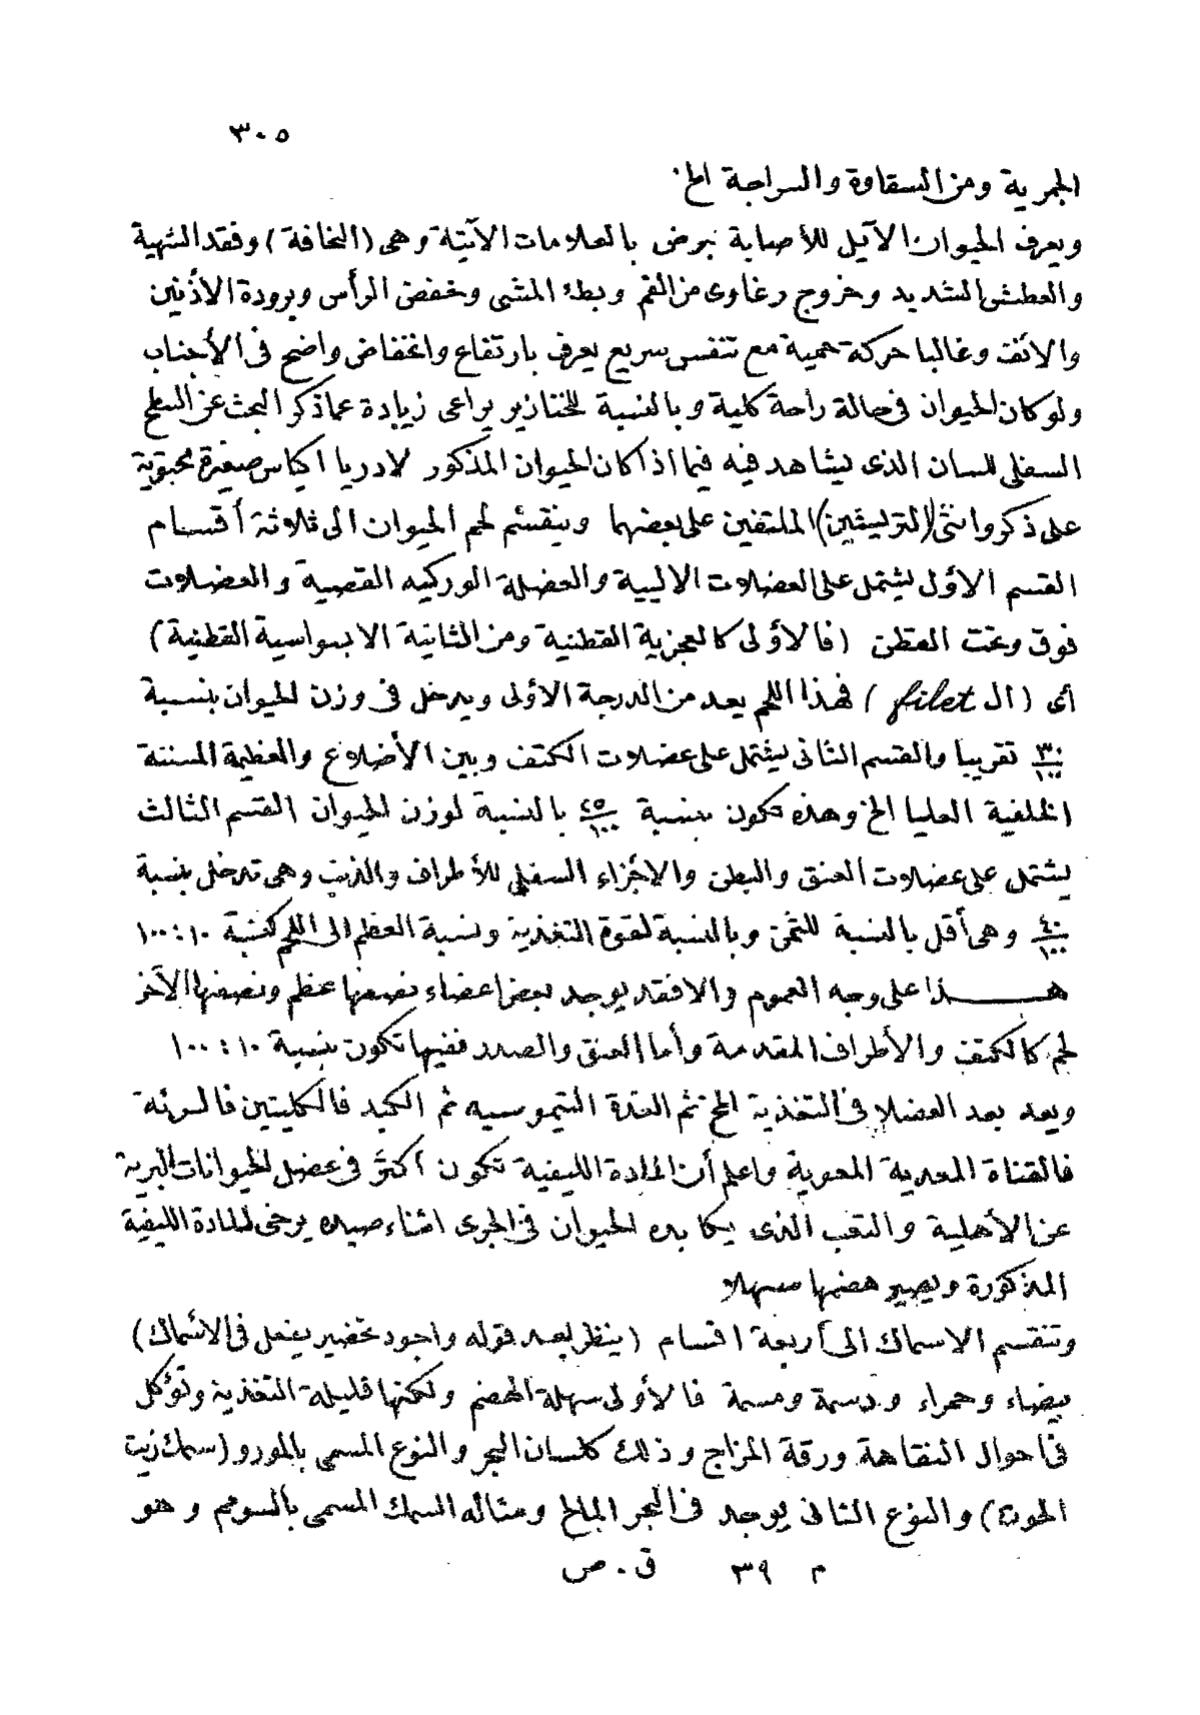 ٣٠٥
الجمرية ومن السقاوة والسراجة الخ.
ويعرف الحيوان الآيل للأصابة بمرض بالعلامات الآتية وهى (النحافة) وفقد الشهية
والعطش الشديد وخروج رغاوى من الفم وبطء المشى وخفض الرأس وبرودة الأذنين
والانف وغالبا حركة حمية مع تنفس سريع يعرف بارتفاع وانخفاض واضح فى الأجناب
ولو كان الحيوان فى حالة راحة كلية وبالنسبة للخنازير يراعى زيادة عما ذكر البحث عن السطح
السفلى للسان الذى يشاهد فيه فيما اذا كان الحيوان المذكور لادريا اكياس صغيرة محتوية
على ذكر وانثى (التريشين) الملتفين على بعضهما وينقسم لحم الحيوان الى ثلاثة أقسام
القسم الأول يشتمل على العضلات الاليية والعضلة الوركيه القصية والعضلات
فوق وتحت القطن (فالأولى كالعجزية القطنية ومن الثانية الابسواسية القطنية)
أى (ال filet) فهذا اللحم يعد من الدرجة الأولى ويدخل فى وزن الحيوان بنسبة
٣٠/١٠٠ تقريبا والقسم الثانى يشتمل على عضلات الكتف وبين الأضلاع والعظيمة المسننة
الخلفية العليا الخ وهذه تكون بنسبة ٢٥/١٠٠ بالنسبة لوزن الحيوان القسم الثالث
يشتمل على عضلات العنق والبطن والاجزاء السفلى للأطراف والذنب وهى تدخل بنسبة
٤٠/١٠٠ وهى أقل بالنسبة للثمن وبالنسبة لقوة التغذية ونسبة العظم الى اللحم كنسبة ١٠ : ١٠٠
هـــذا على وجه العموم والا فقد يوجد بعض اعضاء نصفها عظم ونصفها الآخر
لحم كالكتف والأطراف المقدمة وأما العنق والصدر ففيها تكون بنسبة ١٠ : ١٠٠
ويعد بعد العضلات فى التغذية المخ ثم الغدة التيموسيه ثم الكبد فالكليتين فالرئة
فالقناة المعدية المعوية واعلم أن المادة الليفية تكون أكثر فى عضل الحيوانات البرية
عن الأهلية والتعب الذى يكابده الحيوان فى الجرى اثناء صيده يرخى المادة الليفية
المذكورة ويصير هضمها سهلا
وتنقسم الاسماك الى أربعة اقسام (ينظر بعد قوله واجود تحضير يفعل فى الاسماك)
بيضاء وحمراء ودسمة ومسمة فالأولى سهلة الهضم ولكنها قليلة التغذية وتؤكل
فى احوال النقاهة ورقة المزاج وذلك كلسان البحر والنوع المسمى بالمورو (سمك زيت
الحوت) والنوع الثانى يوجد فى البحر المالح ومثاله السمك المسمى بالسومم وهو
م ٣٩ ق . ص